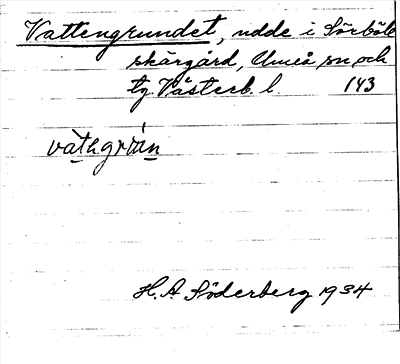 Vattengrundet, udde i Sörböle
skärgård, Umeå sn och
tg Västerb. l. 143
H. A Söderberg 1934